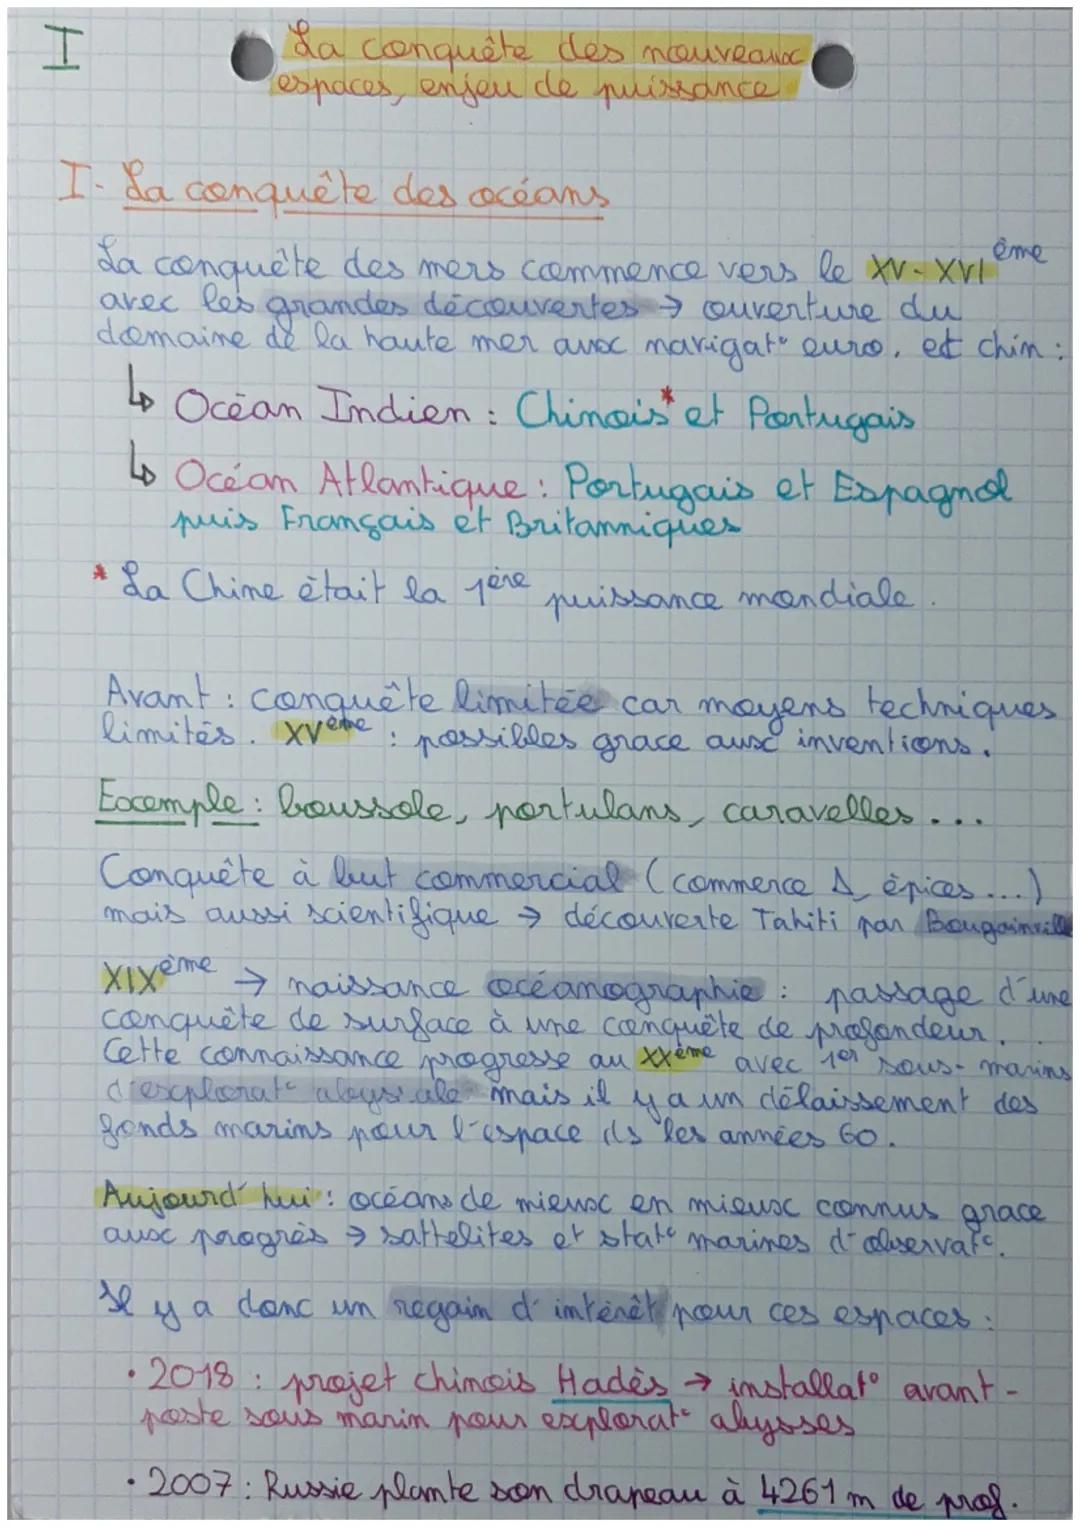 I
La conquête des nouveaux
espaces, enjeu de puissance
I- La conquête des océans
La conquête des mers commence vers le XV-XVIème
avec les grandes découvertes → ouverture du
domaine de la haute mer avec navigat° euro. et chin :
↳ Océan Indien : Chinois* et Portugais
↳ Océan Atlantique : Portugais et Espagnol
puis Français et Britanniques
* La Chine était la 1ère puissance mondiale.
Avant : conquête limitée car moyens techniques
limités. XVème : possibles grace aux inventions.
Exemple : boussole, portulans, caravelles...
Conquête à but commercial (commerce Δ, épices...)
mais aussi scientifique → découverte Tahiti par Bougainville
XIXème → naissance océanographie : passage d'une
conquête de surface à une conquête de profondeur.
Cette connaissance progresse au XXème avec 1er sous-marins
d'explorat° abyssale mais il y a un délaissement des
fonds marins pour l'espace ds les années 60.
Aujourd'hui : océans de mieux en mieux connus grace
aux progrès → sattelites et stat° marines d'observat°.
Il y a donc un regain d'intérêt pour ces espaces :
• 2018 : projet chinois Hadès → installat° avant-
poste sous marin pour explorat° abysses
• 2007 : Russie plante son drapeau à 4261 m de prof.